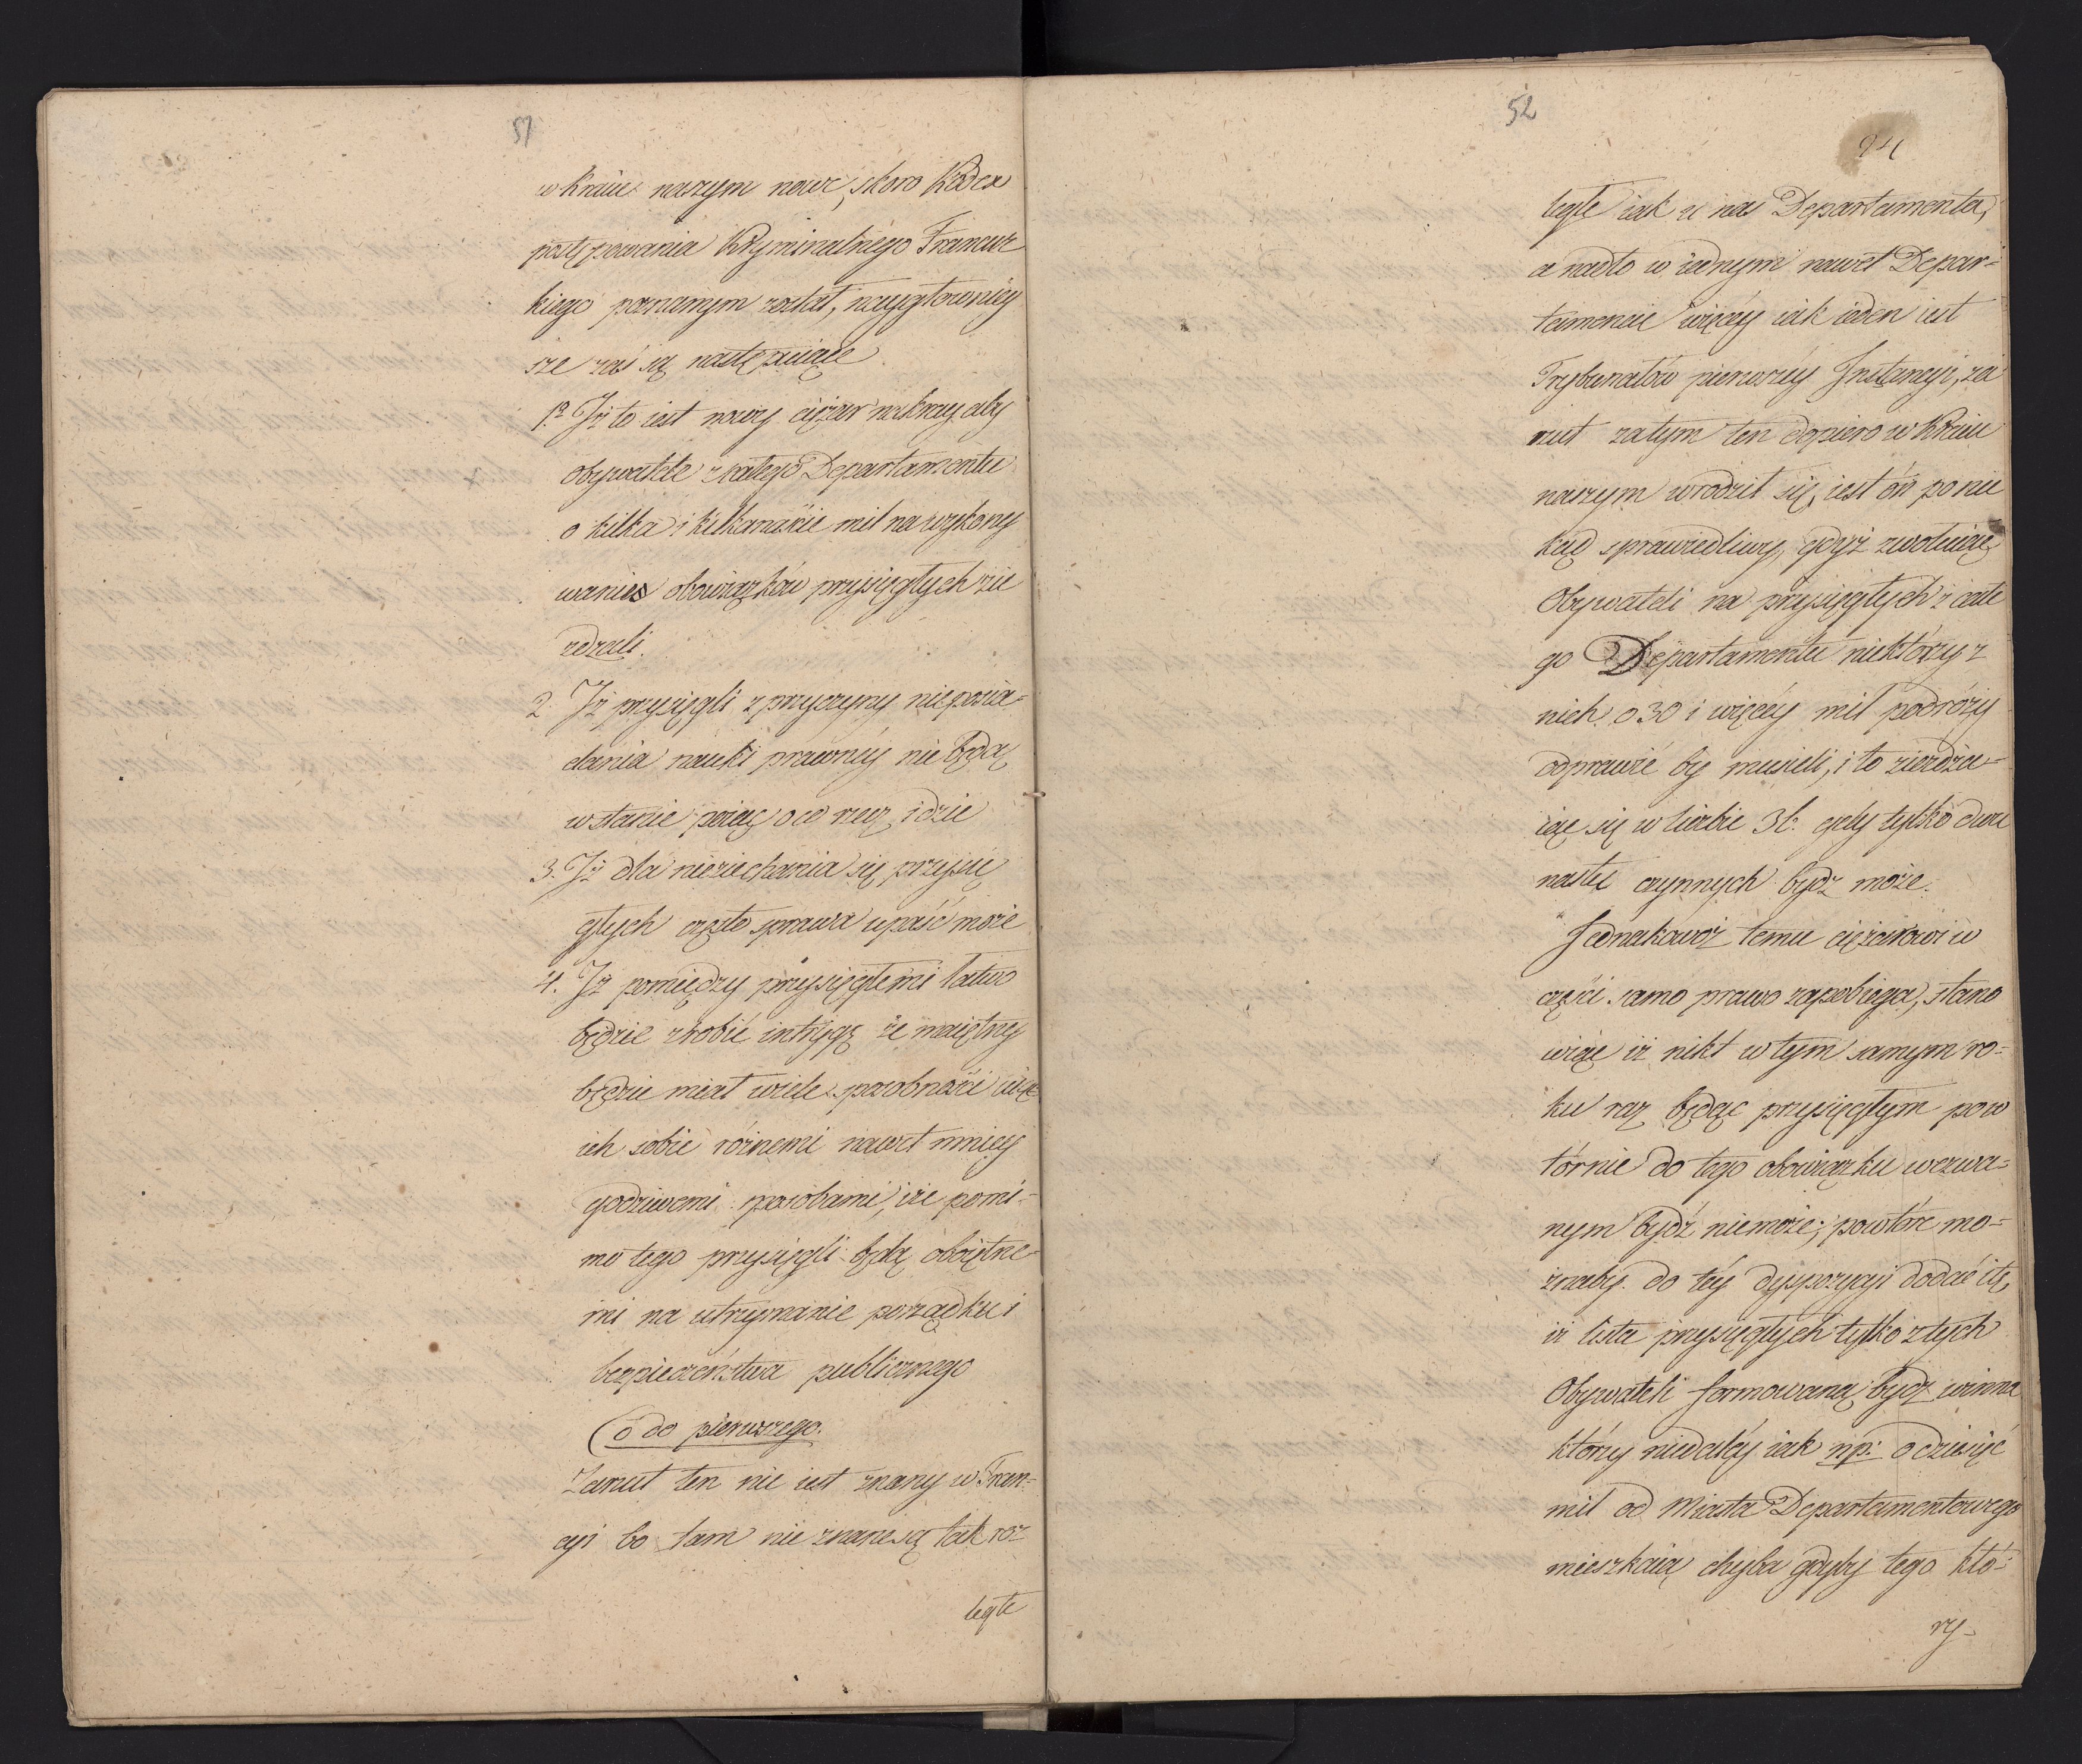 51
w kraiu naszym nowe, skoro Kodex
postępowania Kryminalnego Francuz
kiego poznanym został, nayglowniey
sze zaś są następuiące
1º Iż to iest nowy ciężar na kray aby
obywatele z całego Departamentu
o kilka i kilkanaście mil na wykony
wanie obowiązków przysięgłych zie
żdzali.
2 Iż przysięgli z przyczyny nieposia-
dania nauki prawnéy nie będą
w stanie poiąć o co rzecz idzie
3. Iż dla niezjechania się przysię
głych często sprawa upaść może
4. Iż pomiędzy przysięgłemi łatwo
będzie zrobić intrygę że maiętny
będzie miał wiele sposobności uiąć
ich sobie różnemi nawet mniey
godziwemi sposobami, iże pomi-
mo tego przysięgli będą oboiętne-
mi na utrzymanie porządku i
bezpieczeństwa publicznego
Co do pierwszego.
Zarzut ten nie iest znany w Fran-
cyi bo tam nie znane są tak roz
ległe
52
24
ległe iak u nas Departamenta,
a nadto w iednym nawet Depar-
tamencie więcéy iak ieden iest
Trybunałów pierwszéy Instancyi, za
rzut zatym ten dopiero w Kraiu
naszym wrodził się, iest on po nie
kąd sprawiedliwy, gdyż zwołuiąc
Obywateli na przysięgłych z całe
go Departamentu niektórzy z
nich o 30 i więcéy mil podróży
odprawić by musieli, i to zieżdża-
iąc się w liczbie 36. gdy tylko dwu
nastu czynnych bydź może.
Jednakowoż temu ciężarowi w
części samo prawo zapobiega, stano
wiąc iż nikt w tym samym ro-
ku raz będąc przysięgłym pow
tórnie do tego obowiązku wezwa-
nym bydź niemoże; powtóre mo-
żnaby do téy dyspozycyi dodać i tę,
iż lista przysięgłych tylko z tych
Obywateli formowaną bydź winna
którzy niedaléy iak np: o dziesięć
mil od Miasta Departamentowego
mieszkaią chyba gdyby tego któ-
ry-